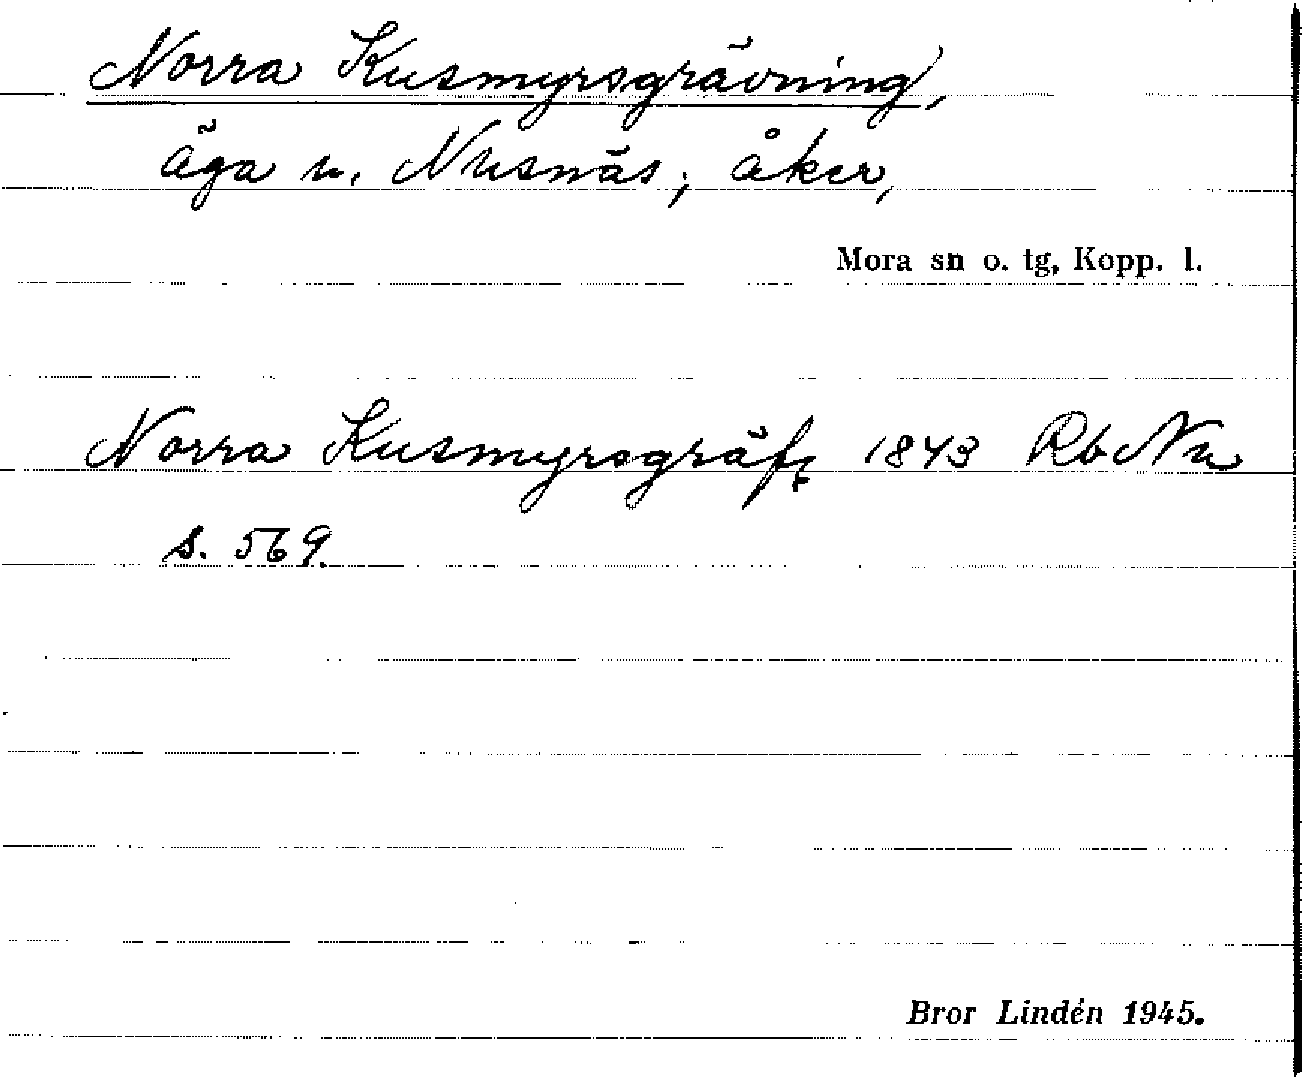 Norra Kusmyrsgrävning,
äga n. Nusnäs; åker,
Mora sn o. tg, Kopp. l.
Norra Kusmyrsgräfg 1843 Rb Nu
s. 569.
Bror Lindén 1945.